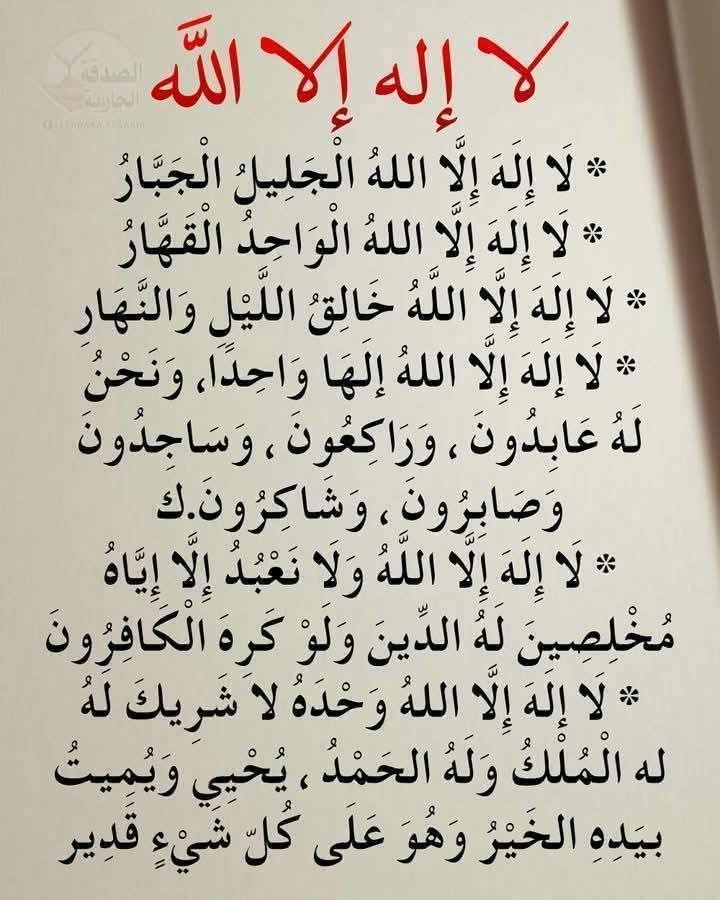 لا إله إلا الله
الصدقة
الجارية
* لَا إِلَهَ إِلَّا اللهُ الْجَلِيلُ الْجَبَّارُ
* لَا إِلَهَ إِلَّا اللهُ الْوَاحِدُ الْقَهَّارُ
* لَا إِلَهَ إِلَّا اللَّهُ خَالِقُ اللَّيْلِ وَالنَّهَارِ
* لَا إلَهَ إِلَّا اللهُ إلَهَا وَاحِدًا، وَنَحْنُ
لَهُ عَابِدُونَ ، وَرَاكِعُونَ ، وَسَاجِدُونَ
وَصَابِرُونَ ، وَشَاكِرُونَ.ك
* لَا إِلَهَ إِلَّا اللَّهُ وَلَا نَعْبُدُ إِلَّا إِيَّاهُ
مُخْلِصِينَ لَهُ الدِّينَ وَلَوْ كَرِهَ الْكَافِرُونَ
* لَا إلَهَ إِلَّا اللهُ وَحْدَهُ لا شَرِيكَ لَهُ
له الْمُلْكُ وَلَهُ الحَمْدُ ، يُحْيِي وَيُمِيتُ
بيَدِهِ الخَيْرُ وَهُوَ عَلَى كُلّ شَيْءٍ قَدِير